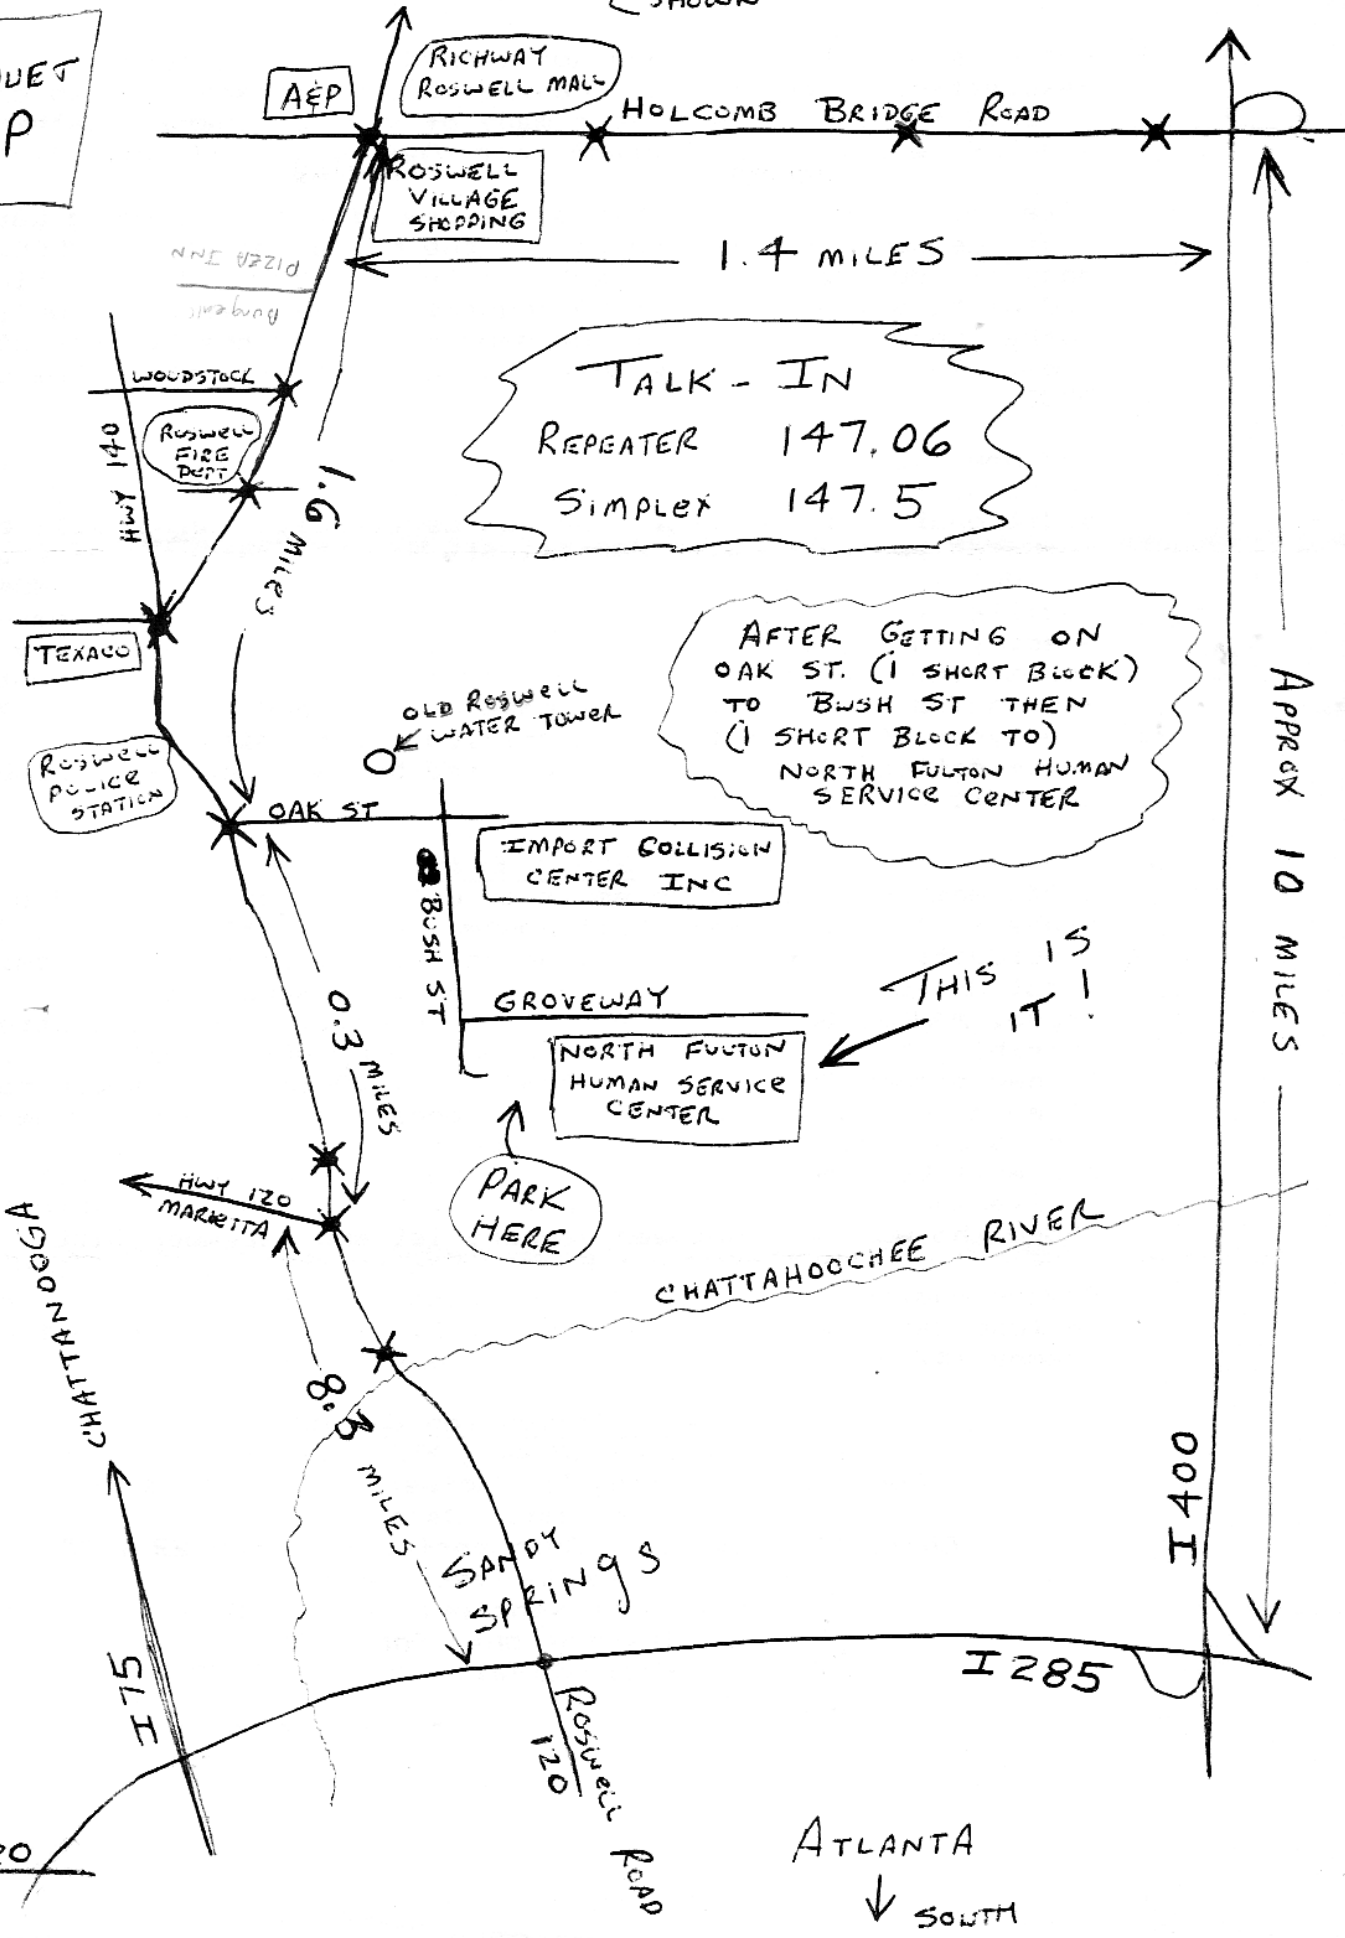 SHOWN
UET
P
A&P
RICHWAY
ROSWELL MALL
HOLCOMB BRIDGE ROAD
ROSWELL
VILLAGE
SHOPPING
1.4 MILES
PIZZA INN
WOODSTOCK
HWY 140
ROSWELL
FIRE
DEPT
1.6 MILES
TALK-IN
REPEATER 147.06
SIMPLEX 147.5
TEXACO
ROSWELL
POLICE
STATION
OLD ROSWELL
WATER TOWER
AFTER GETTING ON
OAK ST. (1 SHORT BLOCK)
TO BUSH ST THEN
(1 SHORT BLOCK TO)
NORTH FULTON HUMAN
SERVICE CENTER
APPROX 10 MILES
OAK ST
IMPORT COLLISION
CENTER INC
BUSH ST
GROVEWAY
THIS IS
IT!
NORTH FULTON
HUMAN SERVICE
CENTER
0.3 MILES
PARK
HERE
HWY 120
MARIETTA
CHATTAHOOCHEE RIVER
CHATTANOOGA
8.3 MILES
SANDY
SPRINGS
I 400
I 75
I 285
ROSWELL ROAD
120
20
ATLANTA
SOUTH